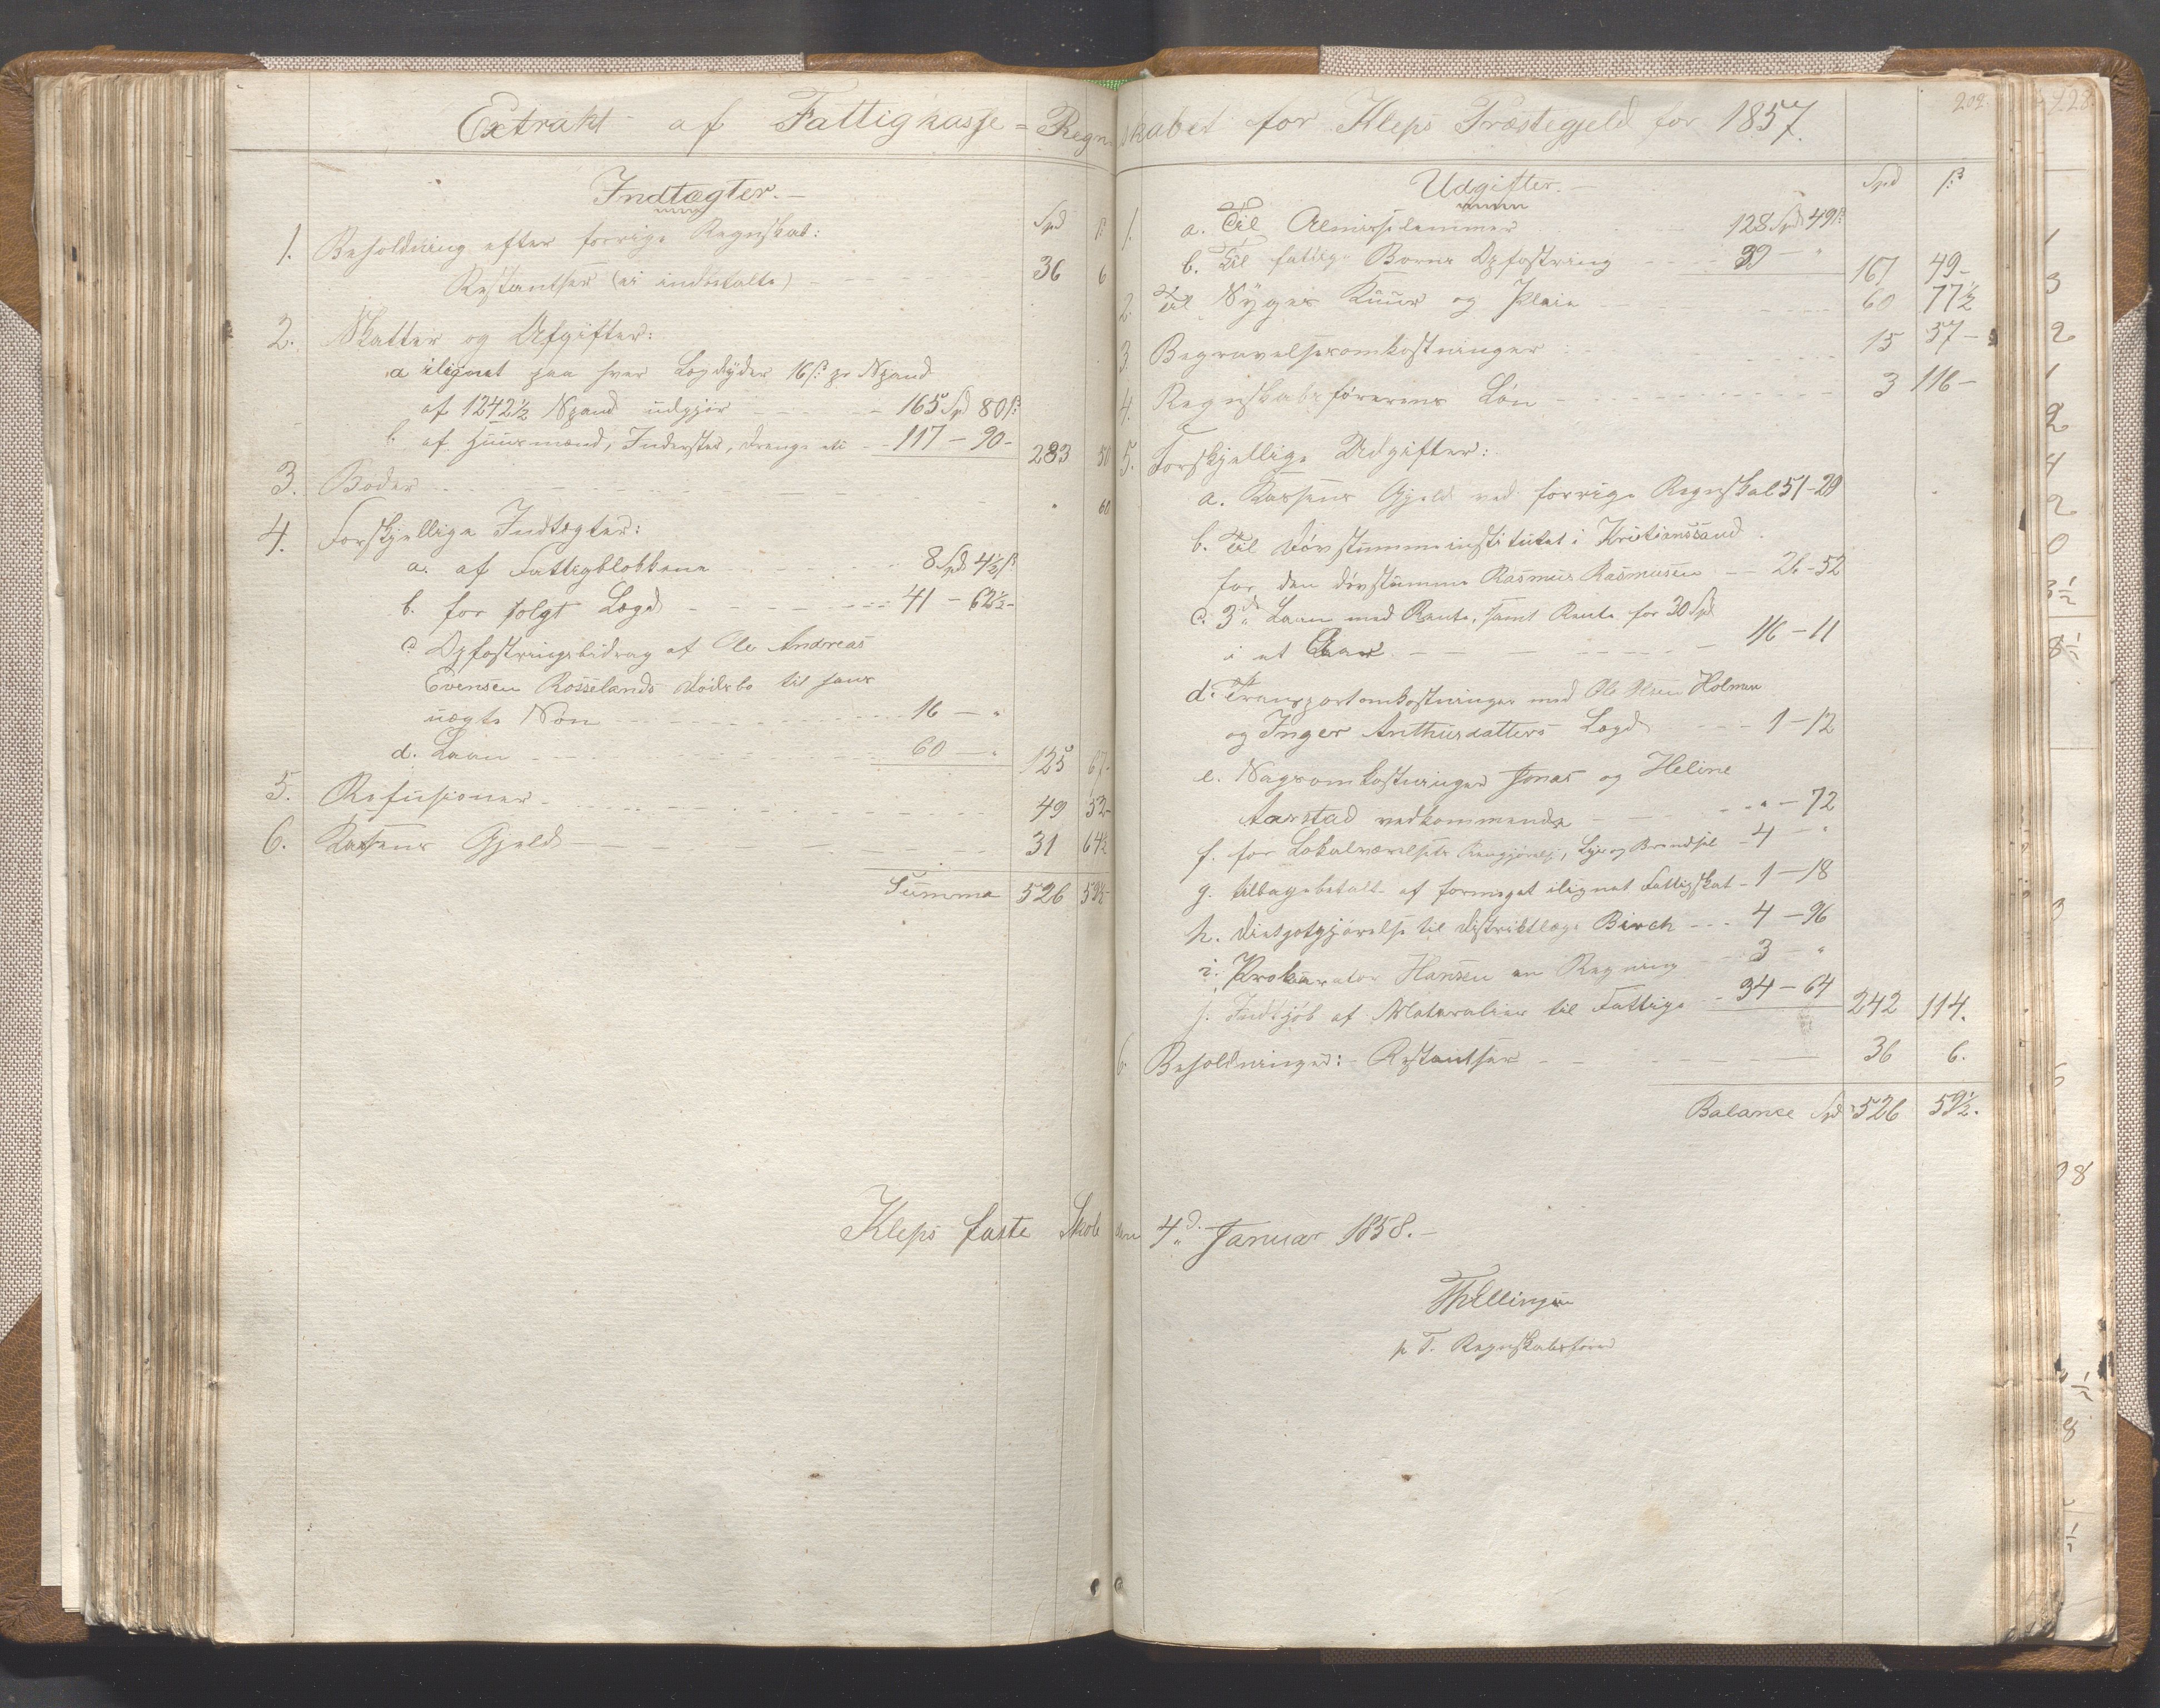 Extrakt af Fattigkasse=Regnskabet for Kleps Præstegjeld for 1857.
202.
Indtægter.
Spd ß
1. Beholdning efter forrige Regnskab:
Restantser (ei indbetalte) 36 6
2. Skatter og Afgifter:
a. ilignet paa hver Lægdyder 16 ß pr Spand
af 1242½ Spand udgjør 165 Spd 80 ß
b. af Huusmænd, Inderster, Drenge etc 117 - 90 - 283 50
3. Bøder " 60
4. Forskjellige Indtægter:
a. af Fattigblokkene 8 Spd 4½ ß
b. for solgt Lægd 41 - 62½ -
c. Opfostringsbidrag af Ole Andreas
Evensen Rosselands Dødsbo til hans
uægte Søn 16 - "
d. Laan 60 - " 125 67 -
5. Refusioner 49 52 -
6. Kassens Gjeld 31 64½
Summa 526 59½
Udgifter.
Spd ß
1. a. Til Almisselemmer 128 Spd 49 ß
b. Til fattige Børns Opfostring 39 - " 167 49 -
2. Til Syges Kuur og Pleie 60 77½
3. Begravelsesomkostninger 15 37 -
4. Regnskabsførerens Løn 3 116 -
5. Forskjellige Udgifter:
a. Kassens Gjeld ved forrige Regnskab 51 - 29
b. Til Døvstummeinstitutet i Kristianssand
for den døvstumme Rasmus Rasmussen 26 - 52
c. 3de Laan med Rente, samt Rente for 30 Spd
i et Aar 116 - 11
d. Transportomkostninger med Ole Olsen Holmen
og Inger Anthusdatters Lægd 1 - 12
e. Sagsomkostninger Jonas og Heline
Aarstad vedkommende " - 72
f. for Lokalværelsets Rengjørelse, Lys og Brændsel 4 - "
g. tilbagebetalt af formeget ilignet Fattigskat 1 - 18
h. Diætgodtgjørelse til Distriktlæge Birch 4 - 96
i. Prokurator Hansen en Regning 3 - "
j. Indkjøb af Materialier til Fattige 34 - 64 242 114.
6. Beholdninger: Restantser 36 6.
Balance Spd 526 59½.
Kleps faste Skole den 4d. Januar 1858.
Th Ellingsen
p T. Regnskabsfører